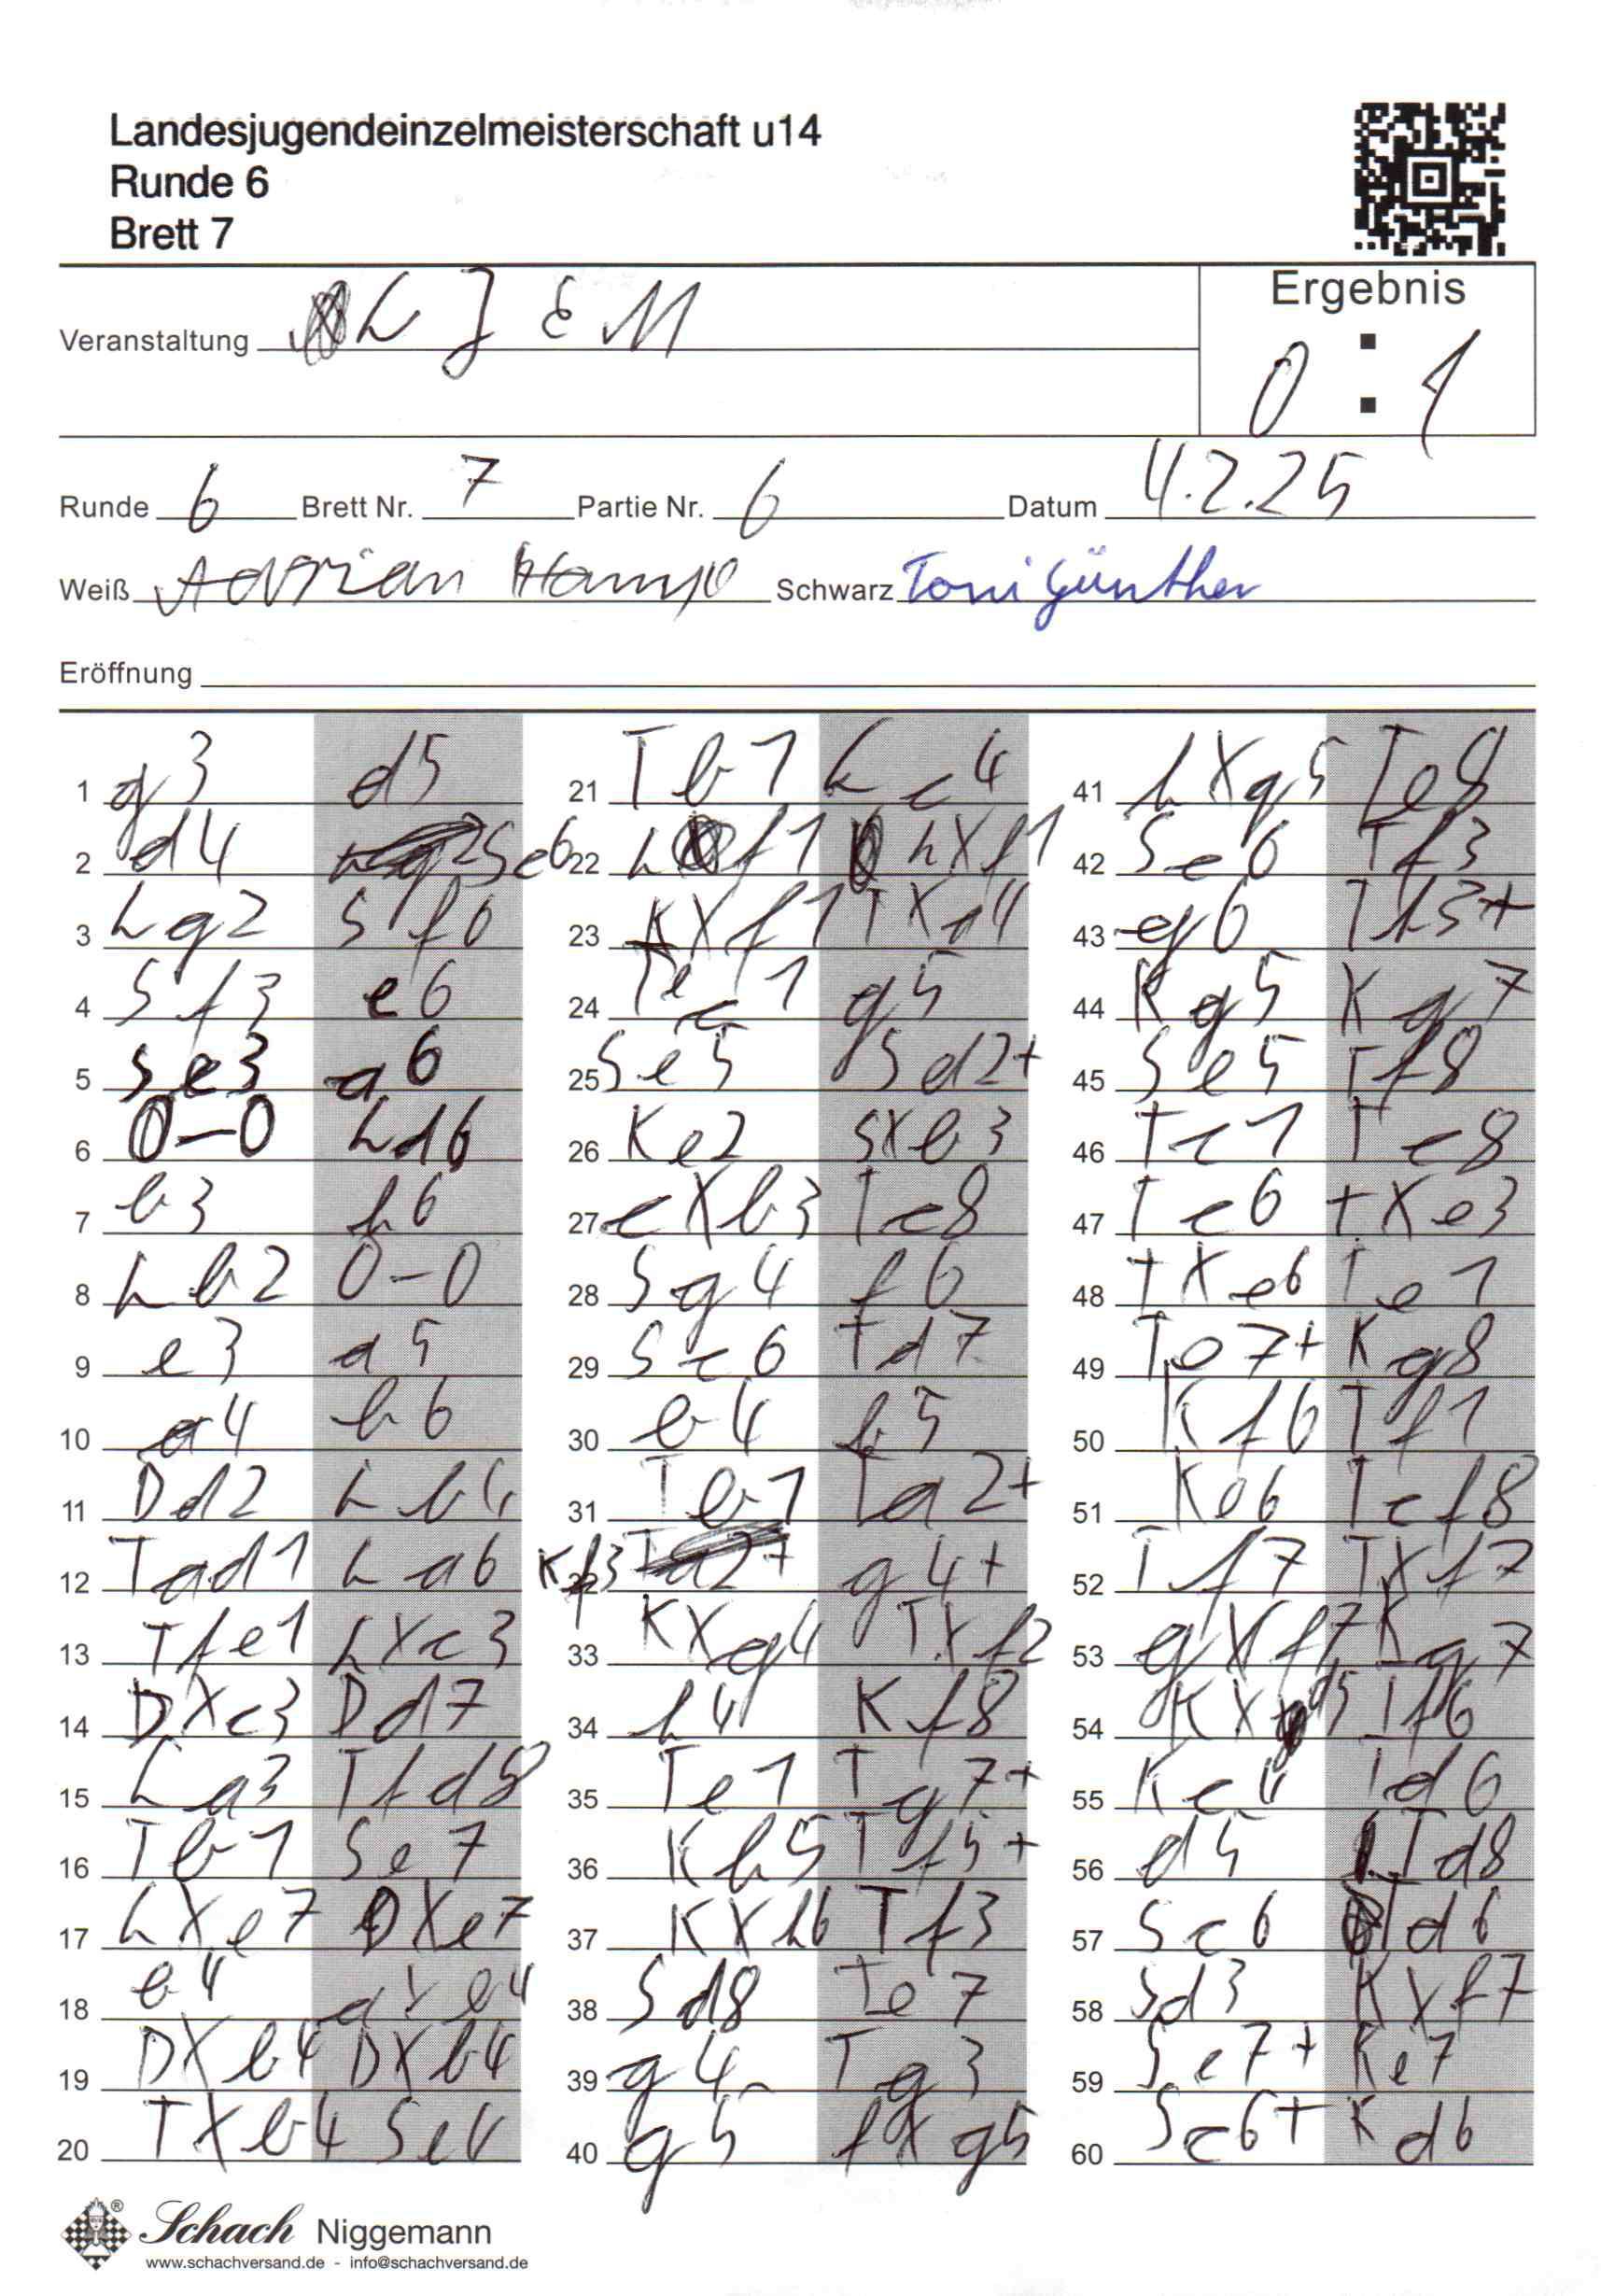 Landesjugendeinzelmeisterschaft u14
Runde 6
Brett 7
Veranstaltung LJEM
Ergebnis
0 : 1
Runde 6 Brett Nr. 7 Partie Nr. 6 Datum 4.2.25
Weiß Adrian Schwarz Toni Günther
Eröffnung
1 g3 d5
2 d4 Sc6
3 Lg2 Sf6
4 Sf3 e6
5 Sc3 a6
6 0-0 Ld6
7 b3 h6
8 Lb2 0-0
9 e3 a5
10 a4 b6
11 Dd2 Lb4
12 Tad1 La6
13 Tfe1 LXc3
14 DXc3 Dd7
15 La3 Tfd8
16 Tb1 Se7
17 LXe7 DXe7
18 b4 aXb4
19 DXb4 DXb4
20 TXb4 Se4
21 Tb1 Lc4
22 Lf1 LXf1
23 KXf1 TXa4
24 Tec1 g5
25 Se5 Sd2+
26 Ke2 SXb3
27 cXb3 Tc8
28 Sg4 f6
29 Sc6 Td7
30 b4 h5
31 Tb1 Ta2+
32 Kf3 g4+
33 KXg4 TXf2
34 h4 Kf8
35 Te1 Tg7+
36 Kh5 Tf5+
37 KXh6 Tf3
38 Sd8 Te7
39 g4 Tg3
40 g5 fXg5
41 hXg5 Te8
42 Se6 Tf3
43 g6 Th3+
44 Kg5 Kg7
45 Se5 Tf8
46 Tc1 Tc8
47 Tc6 TXe3
48 TXe6 Te1
49 Te7+ Kg8
50 Kf6 Tf1
51 Ke6 Tcf8
52 Tf7 TXf7
53 gXf7 Kg7
54 KXd5 Tf6
55 Kc4 Td6
56 d5 Td8
57 Sc6 Td6
58 Sd3 KXf7
59 Se7+ Ke7
60 Sc6+ Kd6
Schach Niggemann
www.schachversand.de - info@schachversand.de